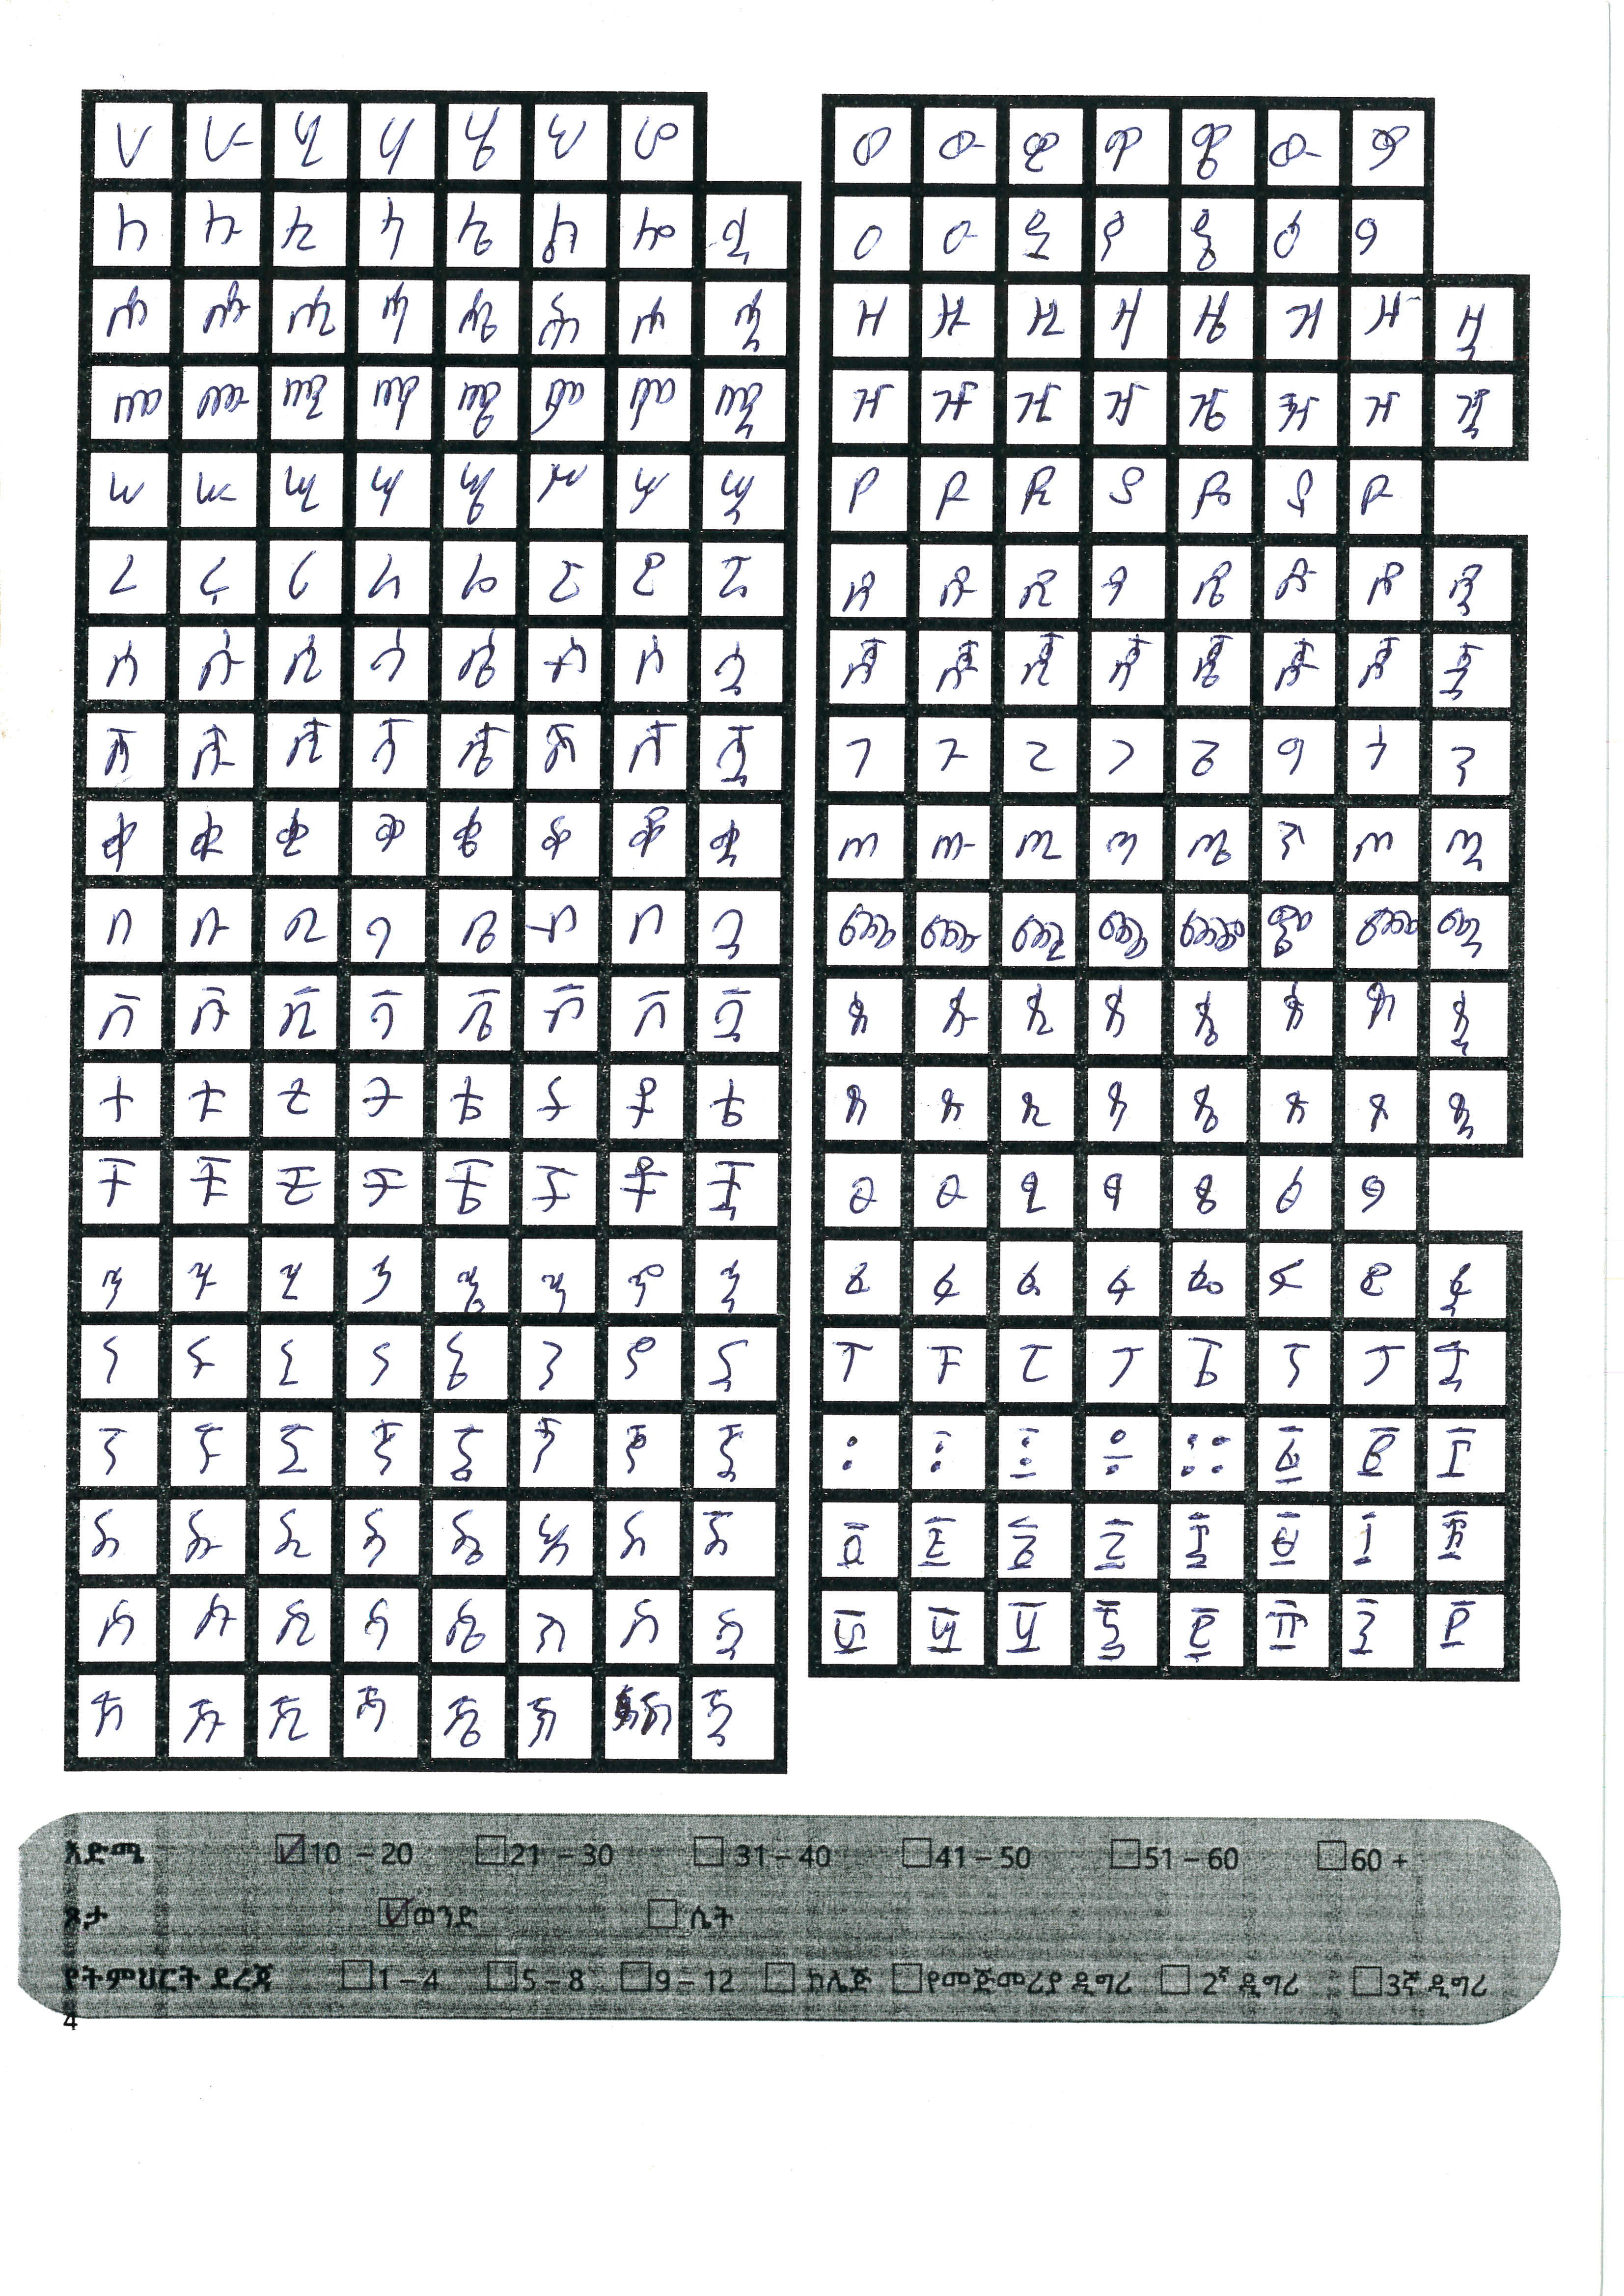 ሀ ሁ ሂ ሃ ሄ ህ ሆ
ለ ሉ ሊ ላ ሌ ል ሎ ሏ
ሐ ሑ ሒ ሓ ሔ ሕ ሖ ሗ
መ ሙ ሚ ማ ሜ ም ሞ ሟ
ሠ ሡ ሢ ሣ ሤ ሥ ሦ ሧ
ረ ሩ ሪ ራ ሬ ር ሮ ሯ
ሰ ሱ ሲ ሳ ሴ ስ ሶ ሷ
ሸ ሹ ሺ ሻ ሼ ሽ ሾ ሿ
ቀ ቁ ቂ ቃ ቄ ቅ ቆ ቋ
በ ቡ ቢ ባ ቤ ብ ቦ ቧ
ቨ ቩ ቪ ቫ ቬ ቭ ቮ ቯ
ተ ቱ ቲ ታ ቴ ት ቶ ቷ
ቸ ቹ ቺ ቻ ቼ ች ቾ ቿ
ኀ ኁ ኂ ኃ ኄ ኅ ኆ ኋ
ነ ኑ ኒ ና ኔ ን ኖ ኗ
ኘ ኙ ኚ ኛ ኜ ኝ ኞ ኟ
አ ኡ ኢ ኣ ኤ እ ኦ ኧ
ከ ኩ ኪ ካ ኬ ክ ኮ ኳ
ኸ ኹ ኺ ኻ ኼ ኽ ኾ ዃ
ወ ዉ ዊ ዋ ዌ ው ዎ
ዐ ዑ ዒ ዓ ዔ ዕ ዖ
ዘ ዙ ዚ ዛ ዜ ዝ ዞ ዟ
ዠ ዡ ዢ ዣ ዤ ዥ ዦ ዧ
የ ዩ ዪ ያ ዬ ይ ዮ
ደ ዱ ዲ ዳ ዴ ድ ዶ ዷ
ጀ ጁ ጂ ጃ ጄ ጅ ጆ ጇ
ገ ጉ ጊ ጋ ጌ ግ ጎ ጓ
ጠ ጡ ጢ ጣ ጤ ጥ ጦ ጧ
ጨ ጩ ጪ ጫ ጬ ጭ ጮ ጯ
ጰ ጱ ጲ ጳ ጴ ጵ ጶ ጷ
ጸ ጹ ጺ ጻ ጼ ጽ ጾ ጿ
ፀ ፁ ፂ ፃ ፄ ፅ ፆ
ፈ ፉ ፊ ፋ ፌ ፍ ፎ ፏ
ፐ ፑ ፒ ፓ ፔ ፕ ፖ ፗ
፡ ፤ ፥ ÷ ። ፩ ፪ ፫
፬ ፭ ፮ ፯ ፰ ፱ ፲ ፳
፴ ፵ ፶ ፷ ፸ ፹ ፺ ፻
እድሜ 10 – 20 21 – 30 31 – 40 41 – 50 51 – 60 60 +
ጾታ ወንድ ሴት
የትምህርት ደረጃ 1 – 4 5 – 8 9 – 12 ኮሌጅ የመጀመሪያ ዲግሪ 2ኛ ዲግሪ 3ኛ ዲግሪ
4